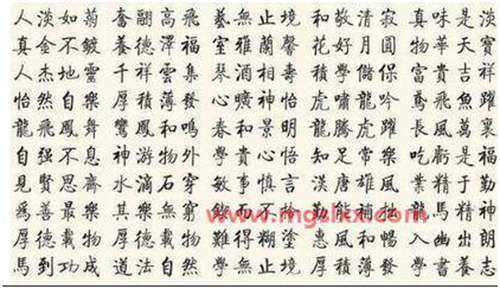 人淡如菊 奮翮高飛 藝無止境 和敬清寂 真味是淡
真金不鍍 養德澤福 室雅蘭馨 花好月圓 物華天寶
人杰地靈 千祥雲集 琴酒相壽 積學儲 富貴吉祥
怡然自樂 厚積薄發 心曠神怡 虎嘯龍吟 鳶飛魚躍
龍飛鳳舞 鸞鳳和鳴 春和景明 龍騰虎躍 長風萬里
自强不息 神游物外 學貴心悟 知足常樂 吃虧是福
見賢思齋 水滴石穿 敏事慎言 漢唐雄風 業精于勤
爲善最樂 其樂無窮 而不 勤能補拙 龍馬精神
厚德載物 厚德載物 難得糊塗 惠風和暢 入幽出朗
馬到功成 道法自然 學無止境 厚積薄發 學書養志